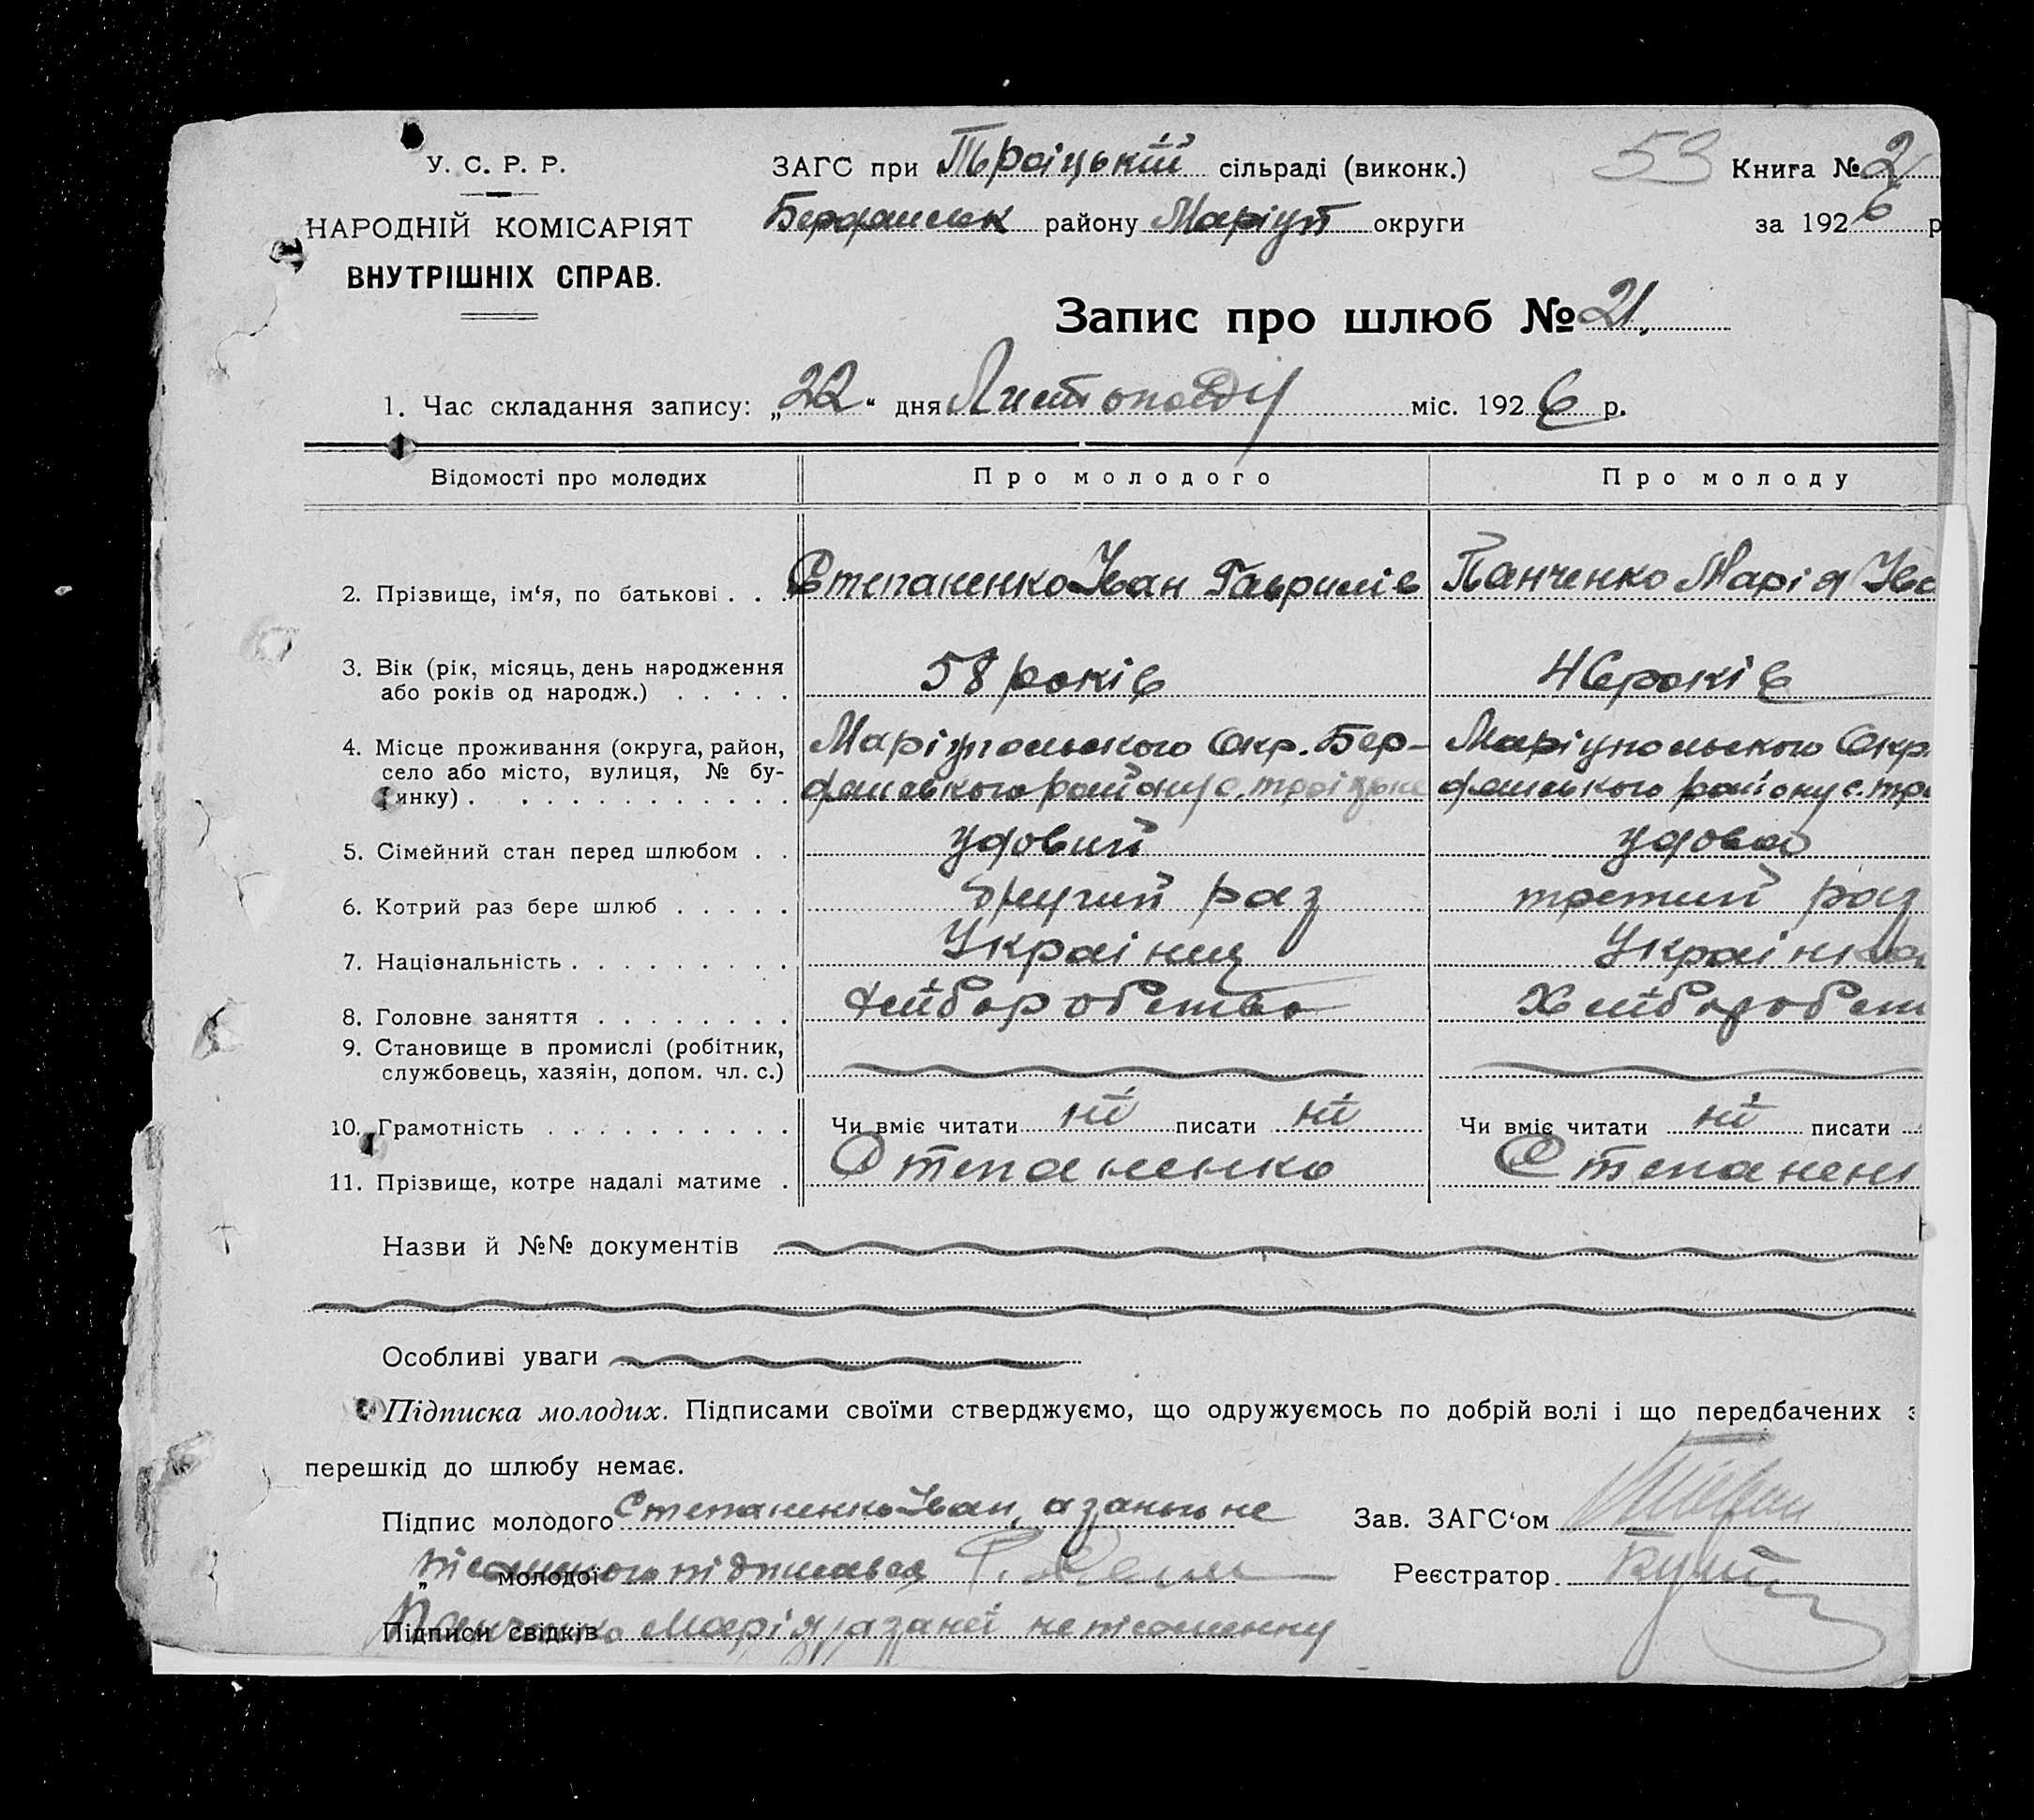 У. С. Р. Р.
НАРОДНІЙ КОМІСАРІЯТ
ВНУТРІШНІХ СПРАВ.
ЗАГС при Троїцькій сільраді (виконк.)
району Маріуп округи
53
Книга № 2
за 1926 р
Запис про шлюб № 21.
1. Час складання запису: „22“ дня Листопаду міс. 1926 р.
Відомості про молодих Про молодого Про молоду
2. Прізвище, ім‘я, по батькові . . . Степаненко Іван Гаврилів Панченко Марія Іва
3. Вік (рік, місяць, день народження
або років од народж.) . . . . . 58 років 46 років
4. Місце проживання (округа, район, Маріупольского Окр. Бер- Маріупольского Окр.
село або місто, вулиця, № бу- району с. троіцьке району с. тро
динку) . . . . . . . . . . . .
5. Сімейний стан перед шлюбом . . удовий удова
6. Котрий раз бере шлюб . . . . . другий раз третий раз
7. Національність . . . . . . . . . Украінец Украінка
8. Головне заняття . . . . . . . . Хліборобство Хліборобст
9. Становище в промислі (робітник,
службовець, хазяін, допом. чл. с.)
10. Грамотність . . . . . . . . . . . Чи вміє читати ні писати ні Чи вміє читати ні писати
11. Прізвище, котре надалі матиме . Степаненко Степанен
Назви й №№ документів
Особливі уваги
Підписка молодих. Підписами своїми стверджуємо, що одружуємось по добрій волі і що передбачених з
перешкід до шлюбу немає.
Підпис молодого Степаненко Іван, а занього не
Зав. ЗАГС‘ом
„ молодої підписався
Реєстратор
Підписи свідків Панченко Марія, а занеі неписьменну